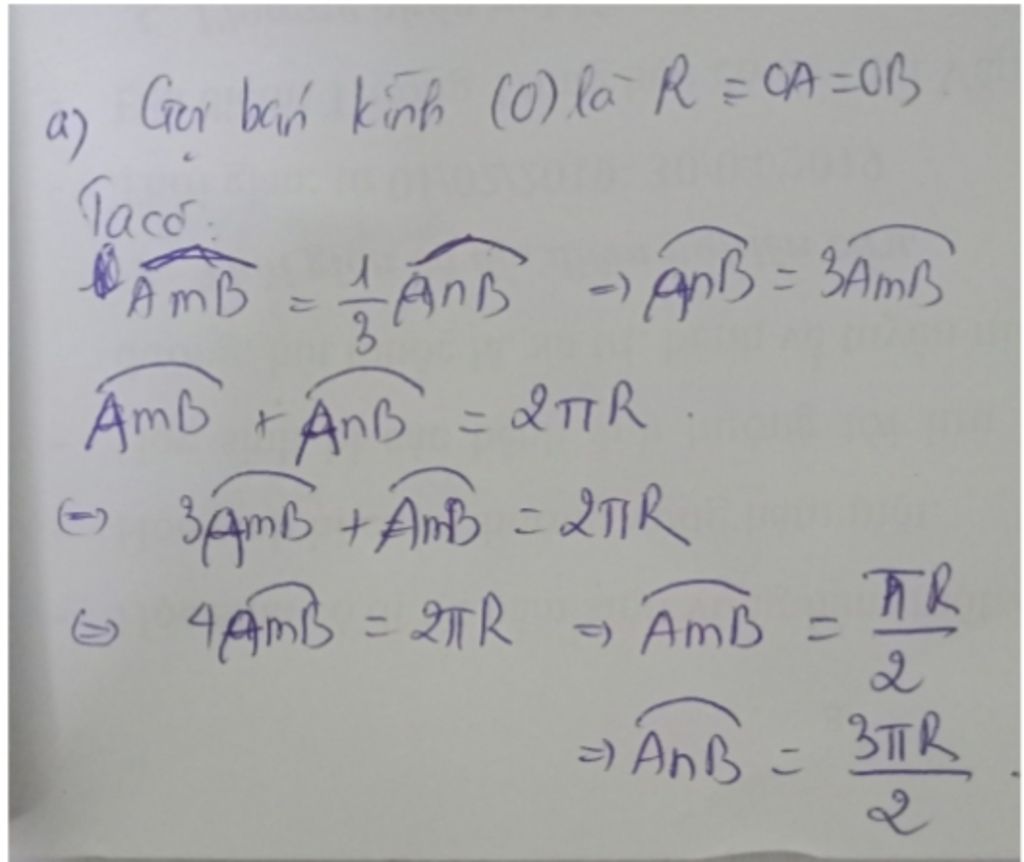 a) Gọi bán kính (O) là R = OA = OB
Ta có:
$\overset{\frown}{AmB} = \frac{1}{3}\overset{\frown}{AnB}$ ⇒ $\overset{\frown}{AnB} = 3\overset{\frown}{AmB}$
$\overset{\frown}{AmB} + \overset{\frown}{AnB} = 2\pi R$.
⇔ $3\overset{\frown}{AmB} + \overset{\frown}{AmB} = 2\pi R$
⇔ $4\overset{\frown}{AmB} = 2\pi R$ ⇒ $\overset{\frown}{AmB} = \frac{\pi R}{2}$
⇒ $\overset{\frown}{AnB} = \frac{3\pi R}{2}$.